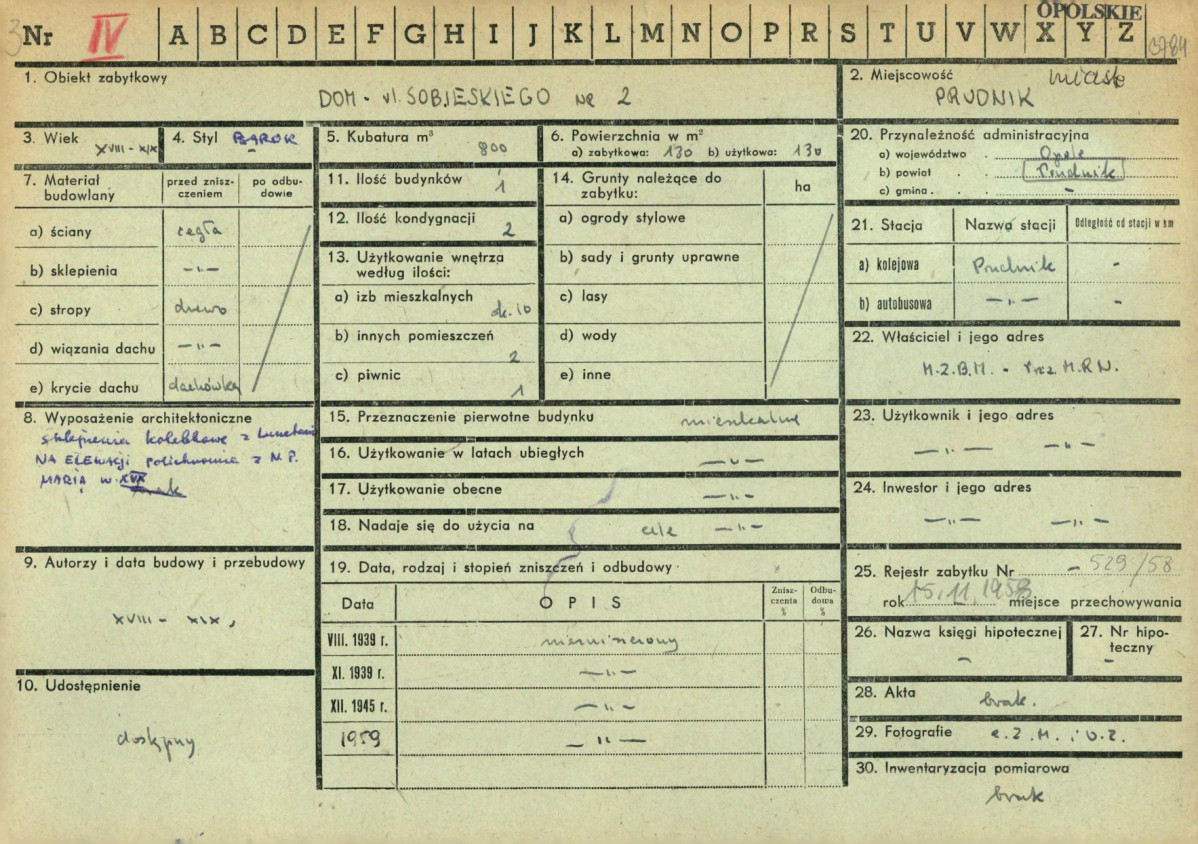 OPOLSKIE
3
Nr IV A B C D E F G H I J K L M N O P R S T U V W X Y Z
1. Obiekt zabytkowy
DOM - ul. SOBIESKIEGO nr 2
2. Miejscowość miasto
PRUDNIK
3. Wiek XVIII - XIX
4. Styl BAROK
5. Kubatura m³ 800
6. Powierzchnia w m²
a) zabytkowa: 130 b) użytkowa: 130
7. Materiał budowlany
przed zniszczeniem
po odbudowie
a) ściany cegła
b) sklepienia —„—
c) stropy drewo
d) wiązania dachu —„—
e) krycie dachu dachówka
8. Wyposażenie architektoniczne
sklepienia kolebkowe z lunetami
NA ELEWACJI polichromia z N.P.
MARIĄ w. XIX
brak
9. Autorzy i data budowy i przebudowy
XVIII - XIX,
10. Udostępnienie
dostępny
11. Ilość budynków 1
12. Ilość kondygnacji 2
13. Użytkowanie wnętrza
według ilości:
a) izb mieszkalnych ok. 10
b) innych pomieszczeń 2
c) piwnic 1
14. Grunty należące do
zabytku:
ha
a) ogrody stylowe
b) sady i grunty uprawne
c) lasy
d) wody
e) inne
15. Przeznaczenie pierwotne budynku mieszkalne
16. Użytkowanie w latach ubiegłych —„—
17. Użytkowanie obecne —„—
18. Nadaje się do użycia na cele —„—
19. Data, rodzaj i stopień zniszczeń i odbudowy
Data OPIS Zniszczenia % Odbudowa %
VIII. 1939 r. nienaruszony
XI. 1939 r. —„—
XII. 1945 r. —„—
1959 —„—
20. Przynależność administracyjna
a) województwo . Opole
b) powiat . . Prudnik
c) gmina . . . —
21. Stacja Nazwa stacji Odległość od stacji w km
a) kolejowa Prudnik -
b) autobusowa —„— -
22. Właściciel i jego adres
M.Z.B.M. - Prez. M.R.N.
23. Użytkownik i jego adres
—„— —„—
24. Inwestor i jego adres
—„— —„—
25. Rejestr zabytku Nr - 529/58
rok 15.11.1958 miejsce przechowywania
26. Nazwa księgi hipotecznej
-
27. Nr hipoteczny
-
28. Akta brak.
29. Fotografie
30. Inwentaryzacja pomiarowa
brak